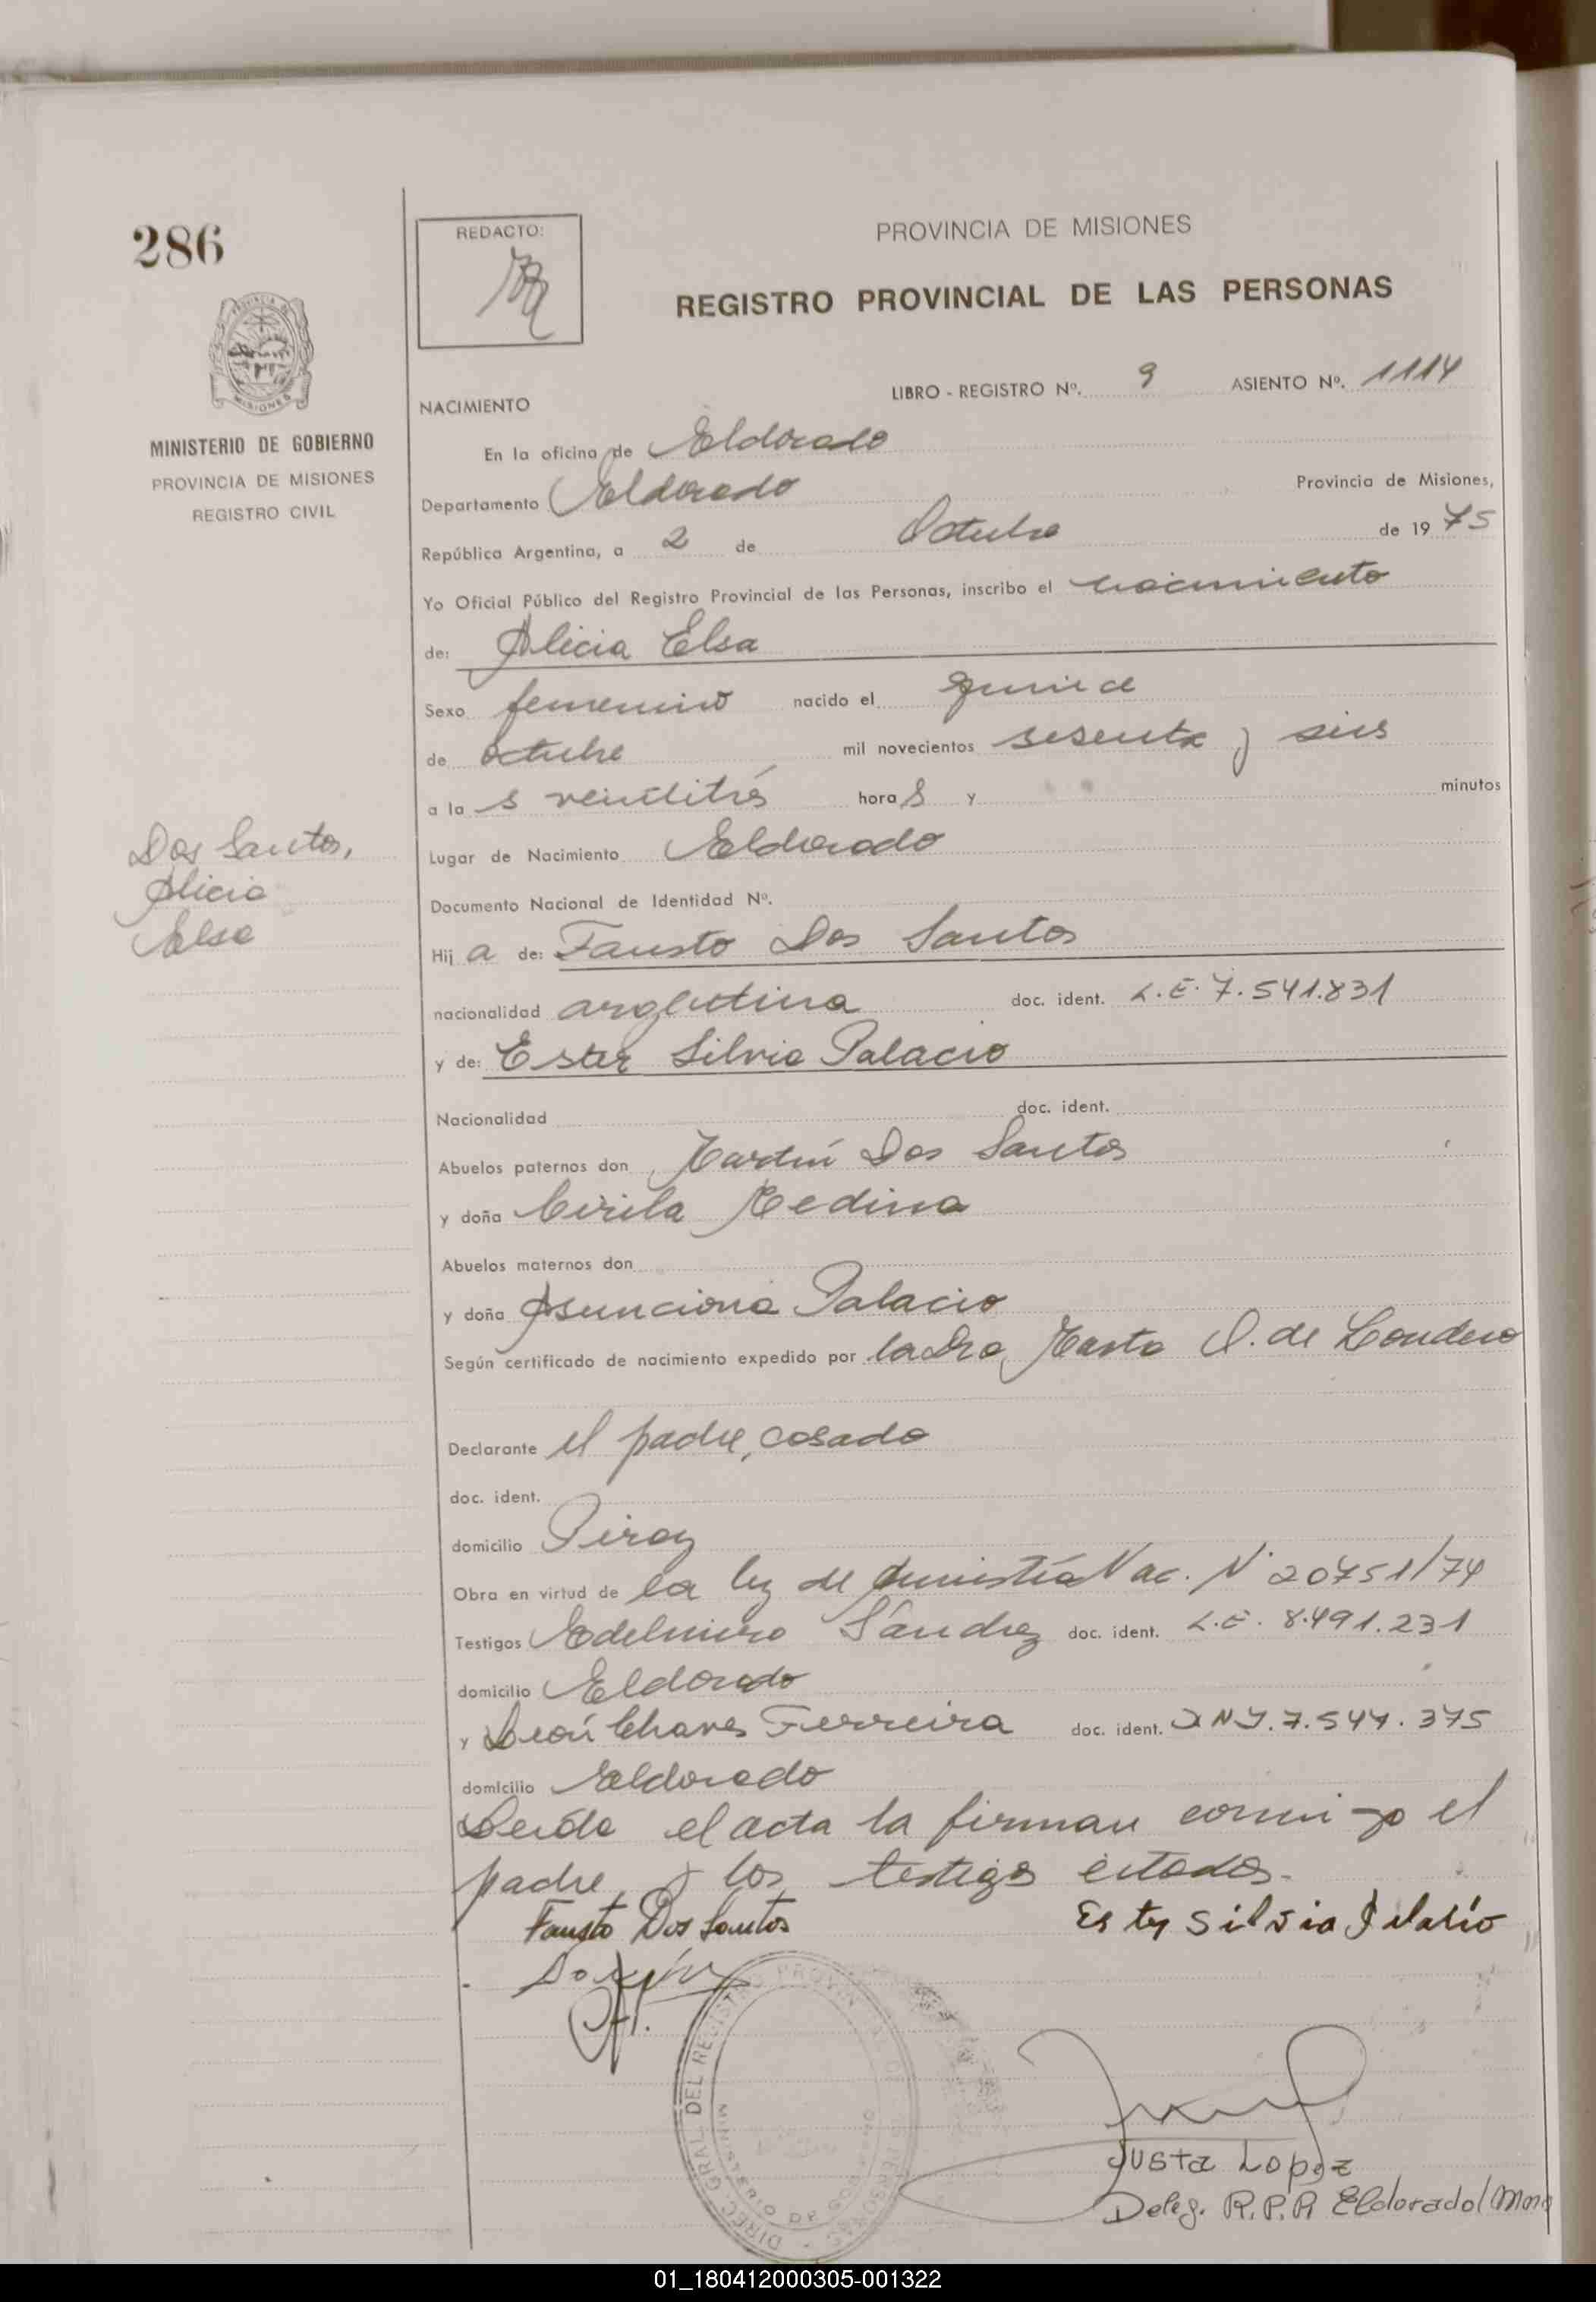 286
REDACTO:
PROVINCIA DE MISIONES
REGISTRO PROVINCIAL DE LAS PERSONAS
MISIONES
MINISTERIO DE GOBIERNO
PROVINCIA DE MISIONES
REGISTRO CIVIL
LIBRO - REGISTRO Nº. 9 ASIENTO Nº. 1114
NACIMIENTO
En la oficina de Eldorado
Departamento Eldorado Provincia de Misiones,
República Argentina, a 2 de Octubre de 19 75
Yo Oficial Público del Registro Provincial de las Personas, inscribo el nacimiento
de: Alicia Elsa
Sexo femenino nacido el quince
de octubre mil novecientos sesenta y seis
a la s veintitrés hora s y minutos
Lugar de Nacimiento Eldorado
Dos Santos,
Alicia
Elsa
Documento Nacional de Identidad Nº.
Hij a de: Fausto Dos Santos
nacionalidad argentina doc. ident. L.E. 7.541.831
y de: Ester Silvia Palacio
Nacionalidad doc. ident.
Abuelos paternos don Martín Dos Santos
y doña Cirila Medina
Abuelos maternos don
y doña Asunciona Palacio
Según certificado de nacimiento expedido por la Dra, Marta de Londero
Declarante el padre, casado
doc. ident.
domicilio Piray
Obra en virtud de la ley de Amnistía Nac. Nº 20751/74
Testigos Edelmiro Sánchez doc. ident. L.E. 8.491.231
domicilio Eldorado
y León Chaves Ferreira doc. ident. DNI. 7.544.375
domicilio Eldorado
Leída el acta la firman conmigo el
padre y los testigos citados.
Fausto Dos Santos Ester Silvia Palacio
DIREC. GRAL. DEL REGISTRO PROVINCIAL DE LAS PERSONAS
MINISTERIO DE GOBIERNO
Justa Lopez
Deleg. R.P.P. Eldorado/Mnes
01_180412000305-001322